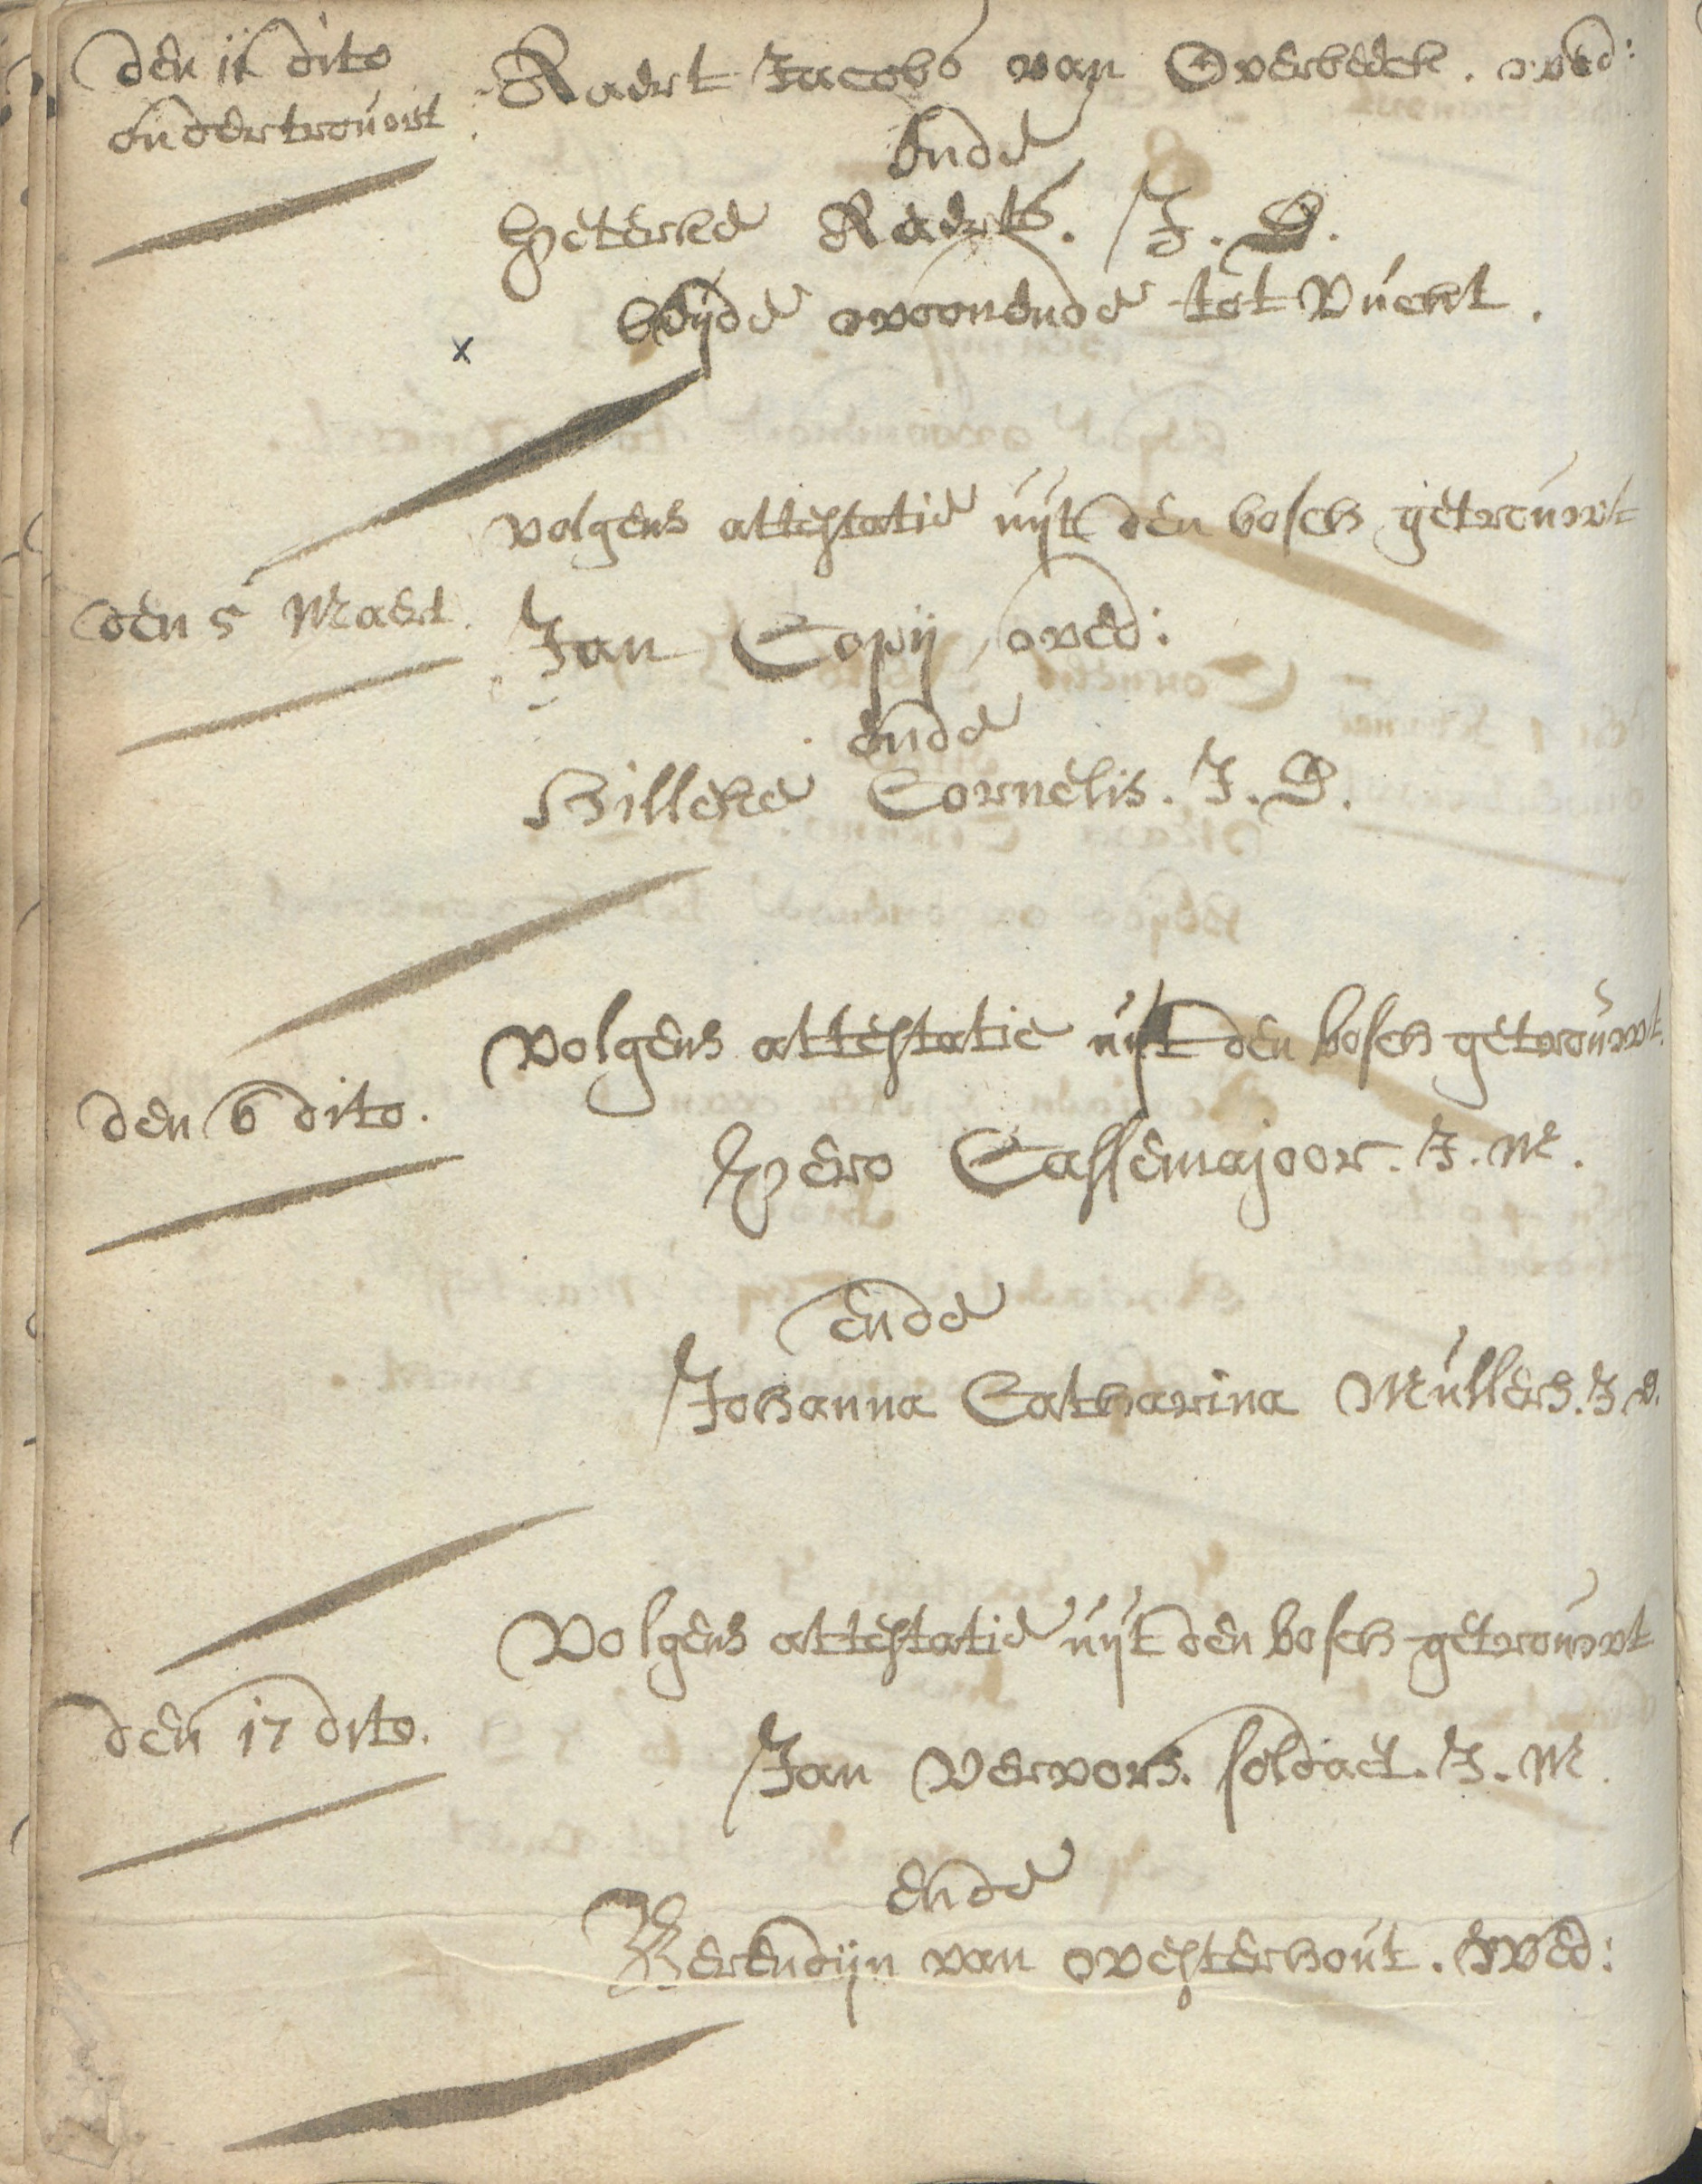 den 11 dito
ondertrouwt
Aadrt Jacobs van Overbeeck. wed:
Ende
Peterke Aadrts. J. D.
beijde woonende tot Vucht.
x
volgens attestatie uijt den bosch getrouwt
den 5 Maert.
Jan Copij wed:
ende
Hilleke Cornelis. J. D.
volgens attestatie uijt den bosch getrouwt
den 6 dito.
Pero Cassemajoor. J. M.
ende
Johanna Catharina Mullers. J. D.
Volgens attestatie uijt den bosch getrouwt
den 17 dito.
Jan Vervors. soldaet. J. M.
ende
Berendijn van Westerhout. Wed: